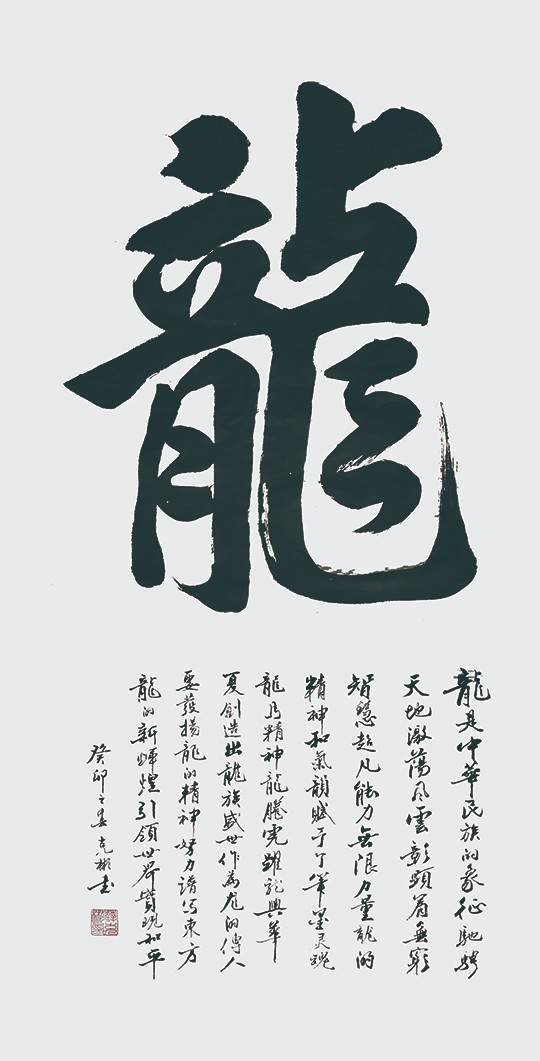 龍
龍是中華民族的象征馳騁
天地激蕩風雲彰顯着無窮
智慧超凡能力無限力量龍的
精神和氣韻賦予了筆墨灵魂
龍乃精神龍騰虎躍龍興華
夏創造出龍族盛世作為龙的傳人
要發揚龍的精神努力譜写東方
龍的新輝煌引領世界實現和平
癸卯之春克彬书